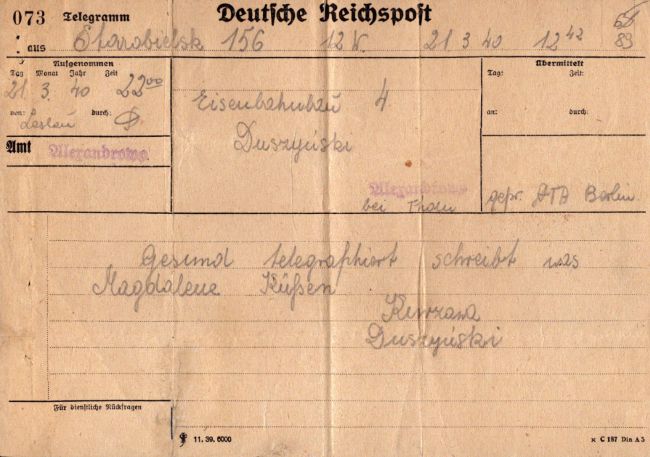 073 Telegramm Deutsche Reichspost
aus Starobielsk 156 12 W. 21 3 40 12 42
Aufgenommen
Tag Monat Jahr Zeit
21. 3. 40 22 00
von: durch:
Leslau
Amt Alexandrowo
Eisenbahnbau 4
Duszyński
Alexandrowo
bei Thorn
Übermittelt
Tag: Zeit:
an: durch:
gepr. Berlin
Gesund telegraphiert schreibt was
Magdalene Küßen
Kurzawa
Duszyński
Für dienstliche Rückfragen
11. 39. 6000
× C 187 Din A 5